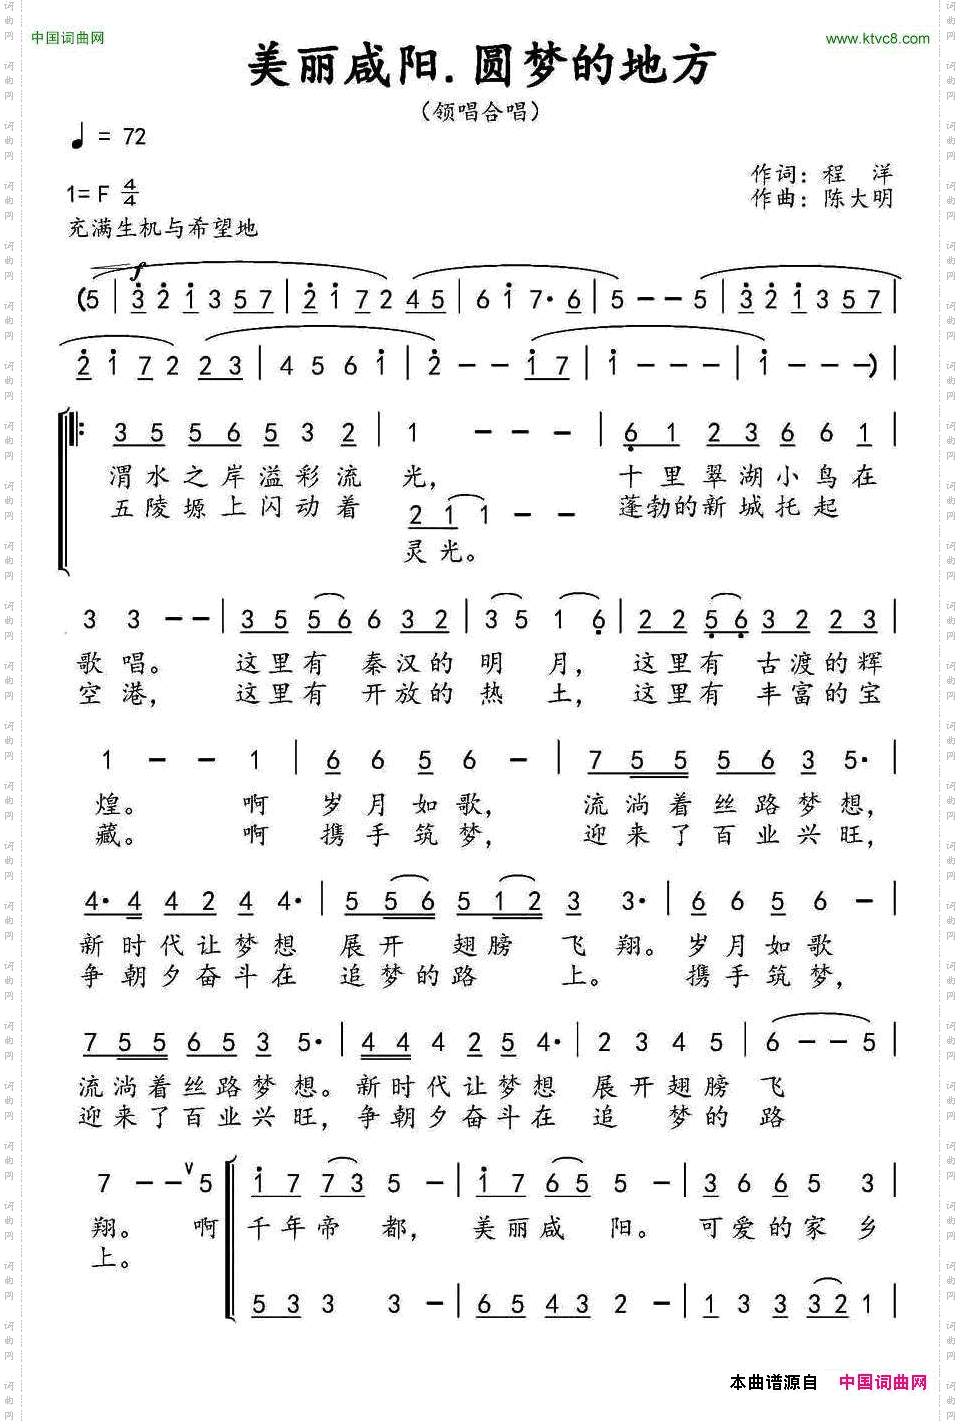 中国词曲网
www.ktvc8.com
美丽咸阳.圆梦的地方
（领唱合唱）
♩ = 72
作词：程 洋
1= F 4/4
作曲：陈大明
充满生机与希望地
f
(5 | 3 2 1 3 5 7 | 2 1 7 2 4 5 | 6 1 7· 6 | 5 - - 5 | 3 2 1 3 5 7 |
2 1 7 2 2 3 | 4 5 6 1 | 2 - - 1 7 | 1 - - - | 1 - - -) |
3 5 5 6 5 3 2 | 1 - - - | 6 1 2 3 6 6 1
渭水之岸溢彩流 光， 十里翠湖小鸟在
五陵塬上闪动着 2 1 1 - - 蓬勃的新城托起
灵光。
3 3 - - | 3 5 5 6 6 3 2 | 3 5 1 6 | 2 2 5 6 3 2 2 2 |
歌唱。 这里有 秦汉的 明 月， 这里有 古渡的辉
空港， 这里有 开放的 热 土， 这里有 丰富的宝
1 - - 1 | 6 6 5 6 - | 7 5 5 5 6 3 5· |
煌。 啊 岁月如歌， 流淌着丝路梦想，
藏。 啊 携手筑梦， 迎来了百业兴旺，
4· 4 4 2 4 4· | 5 5 6 5 1 2 3 3· | 6 6 5 6 - |
新时代让梦想 展开 翅膀 飞翔。岁月如歌
争朝夕奋斗在 追梦的路 上。 携手筑梦，
7 5 5 6 5 3 5· | 4 4 4 2 5 4· | 2 3 4 5 | 6 - - 5 |
流淌着丝路梦想。新时代让梦想 展开翅膀 飞
迎来了百业兴旺，争朝夕奋斗在 追 梦的 路
7 - - ∨ 5 | 1 7 7 3 5 - | 1 7 6 5 5 - | 3 6 6 5 3
翔。 啊 千年帝 都， 美丽咸 阳。 可爱的家乡
上。
5 3 3 3 - | 6 5 4 3 2 - | 1 3 3 3 2 1
本曲谱源自 中国词曲网